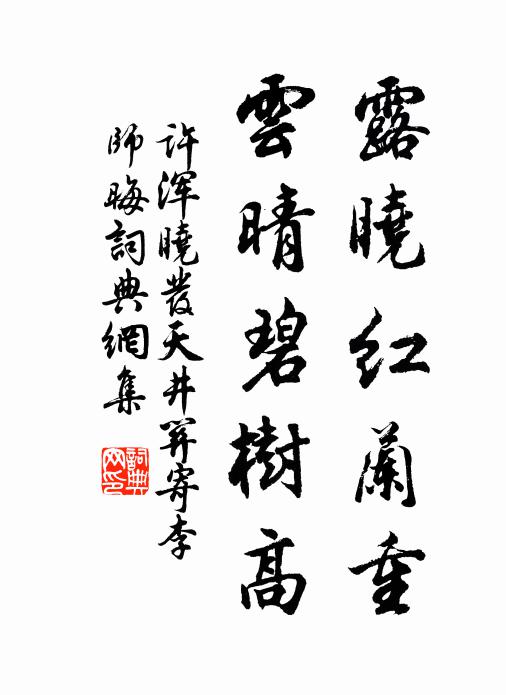 露曉紅蘭重
雲晴碧樹高
許渾曉發天井關寄李
師晦詞典網集
詞典
网印